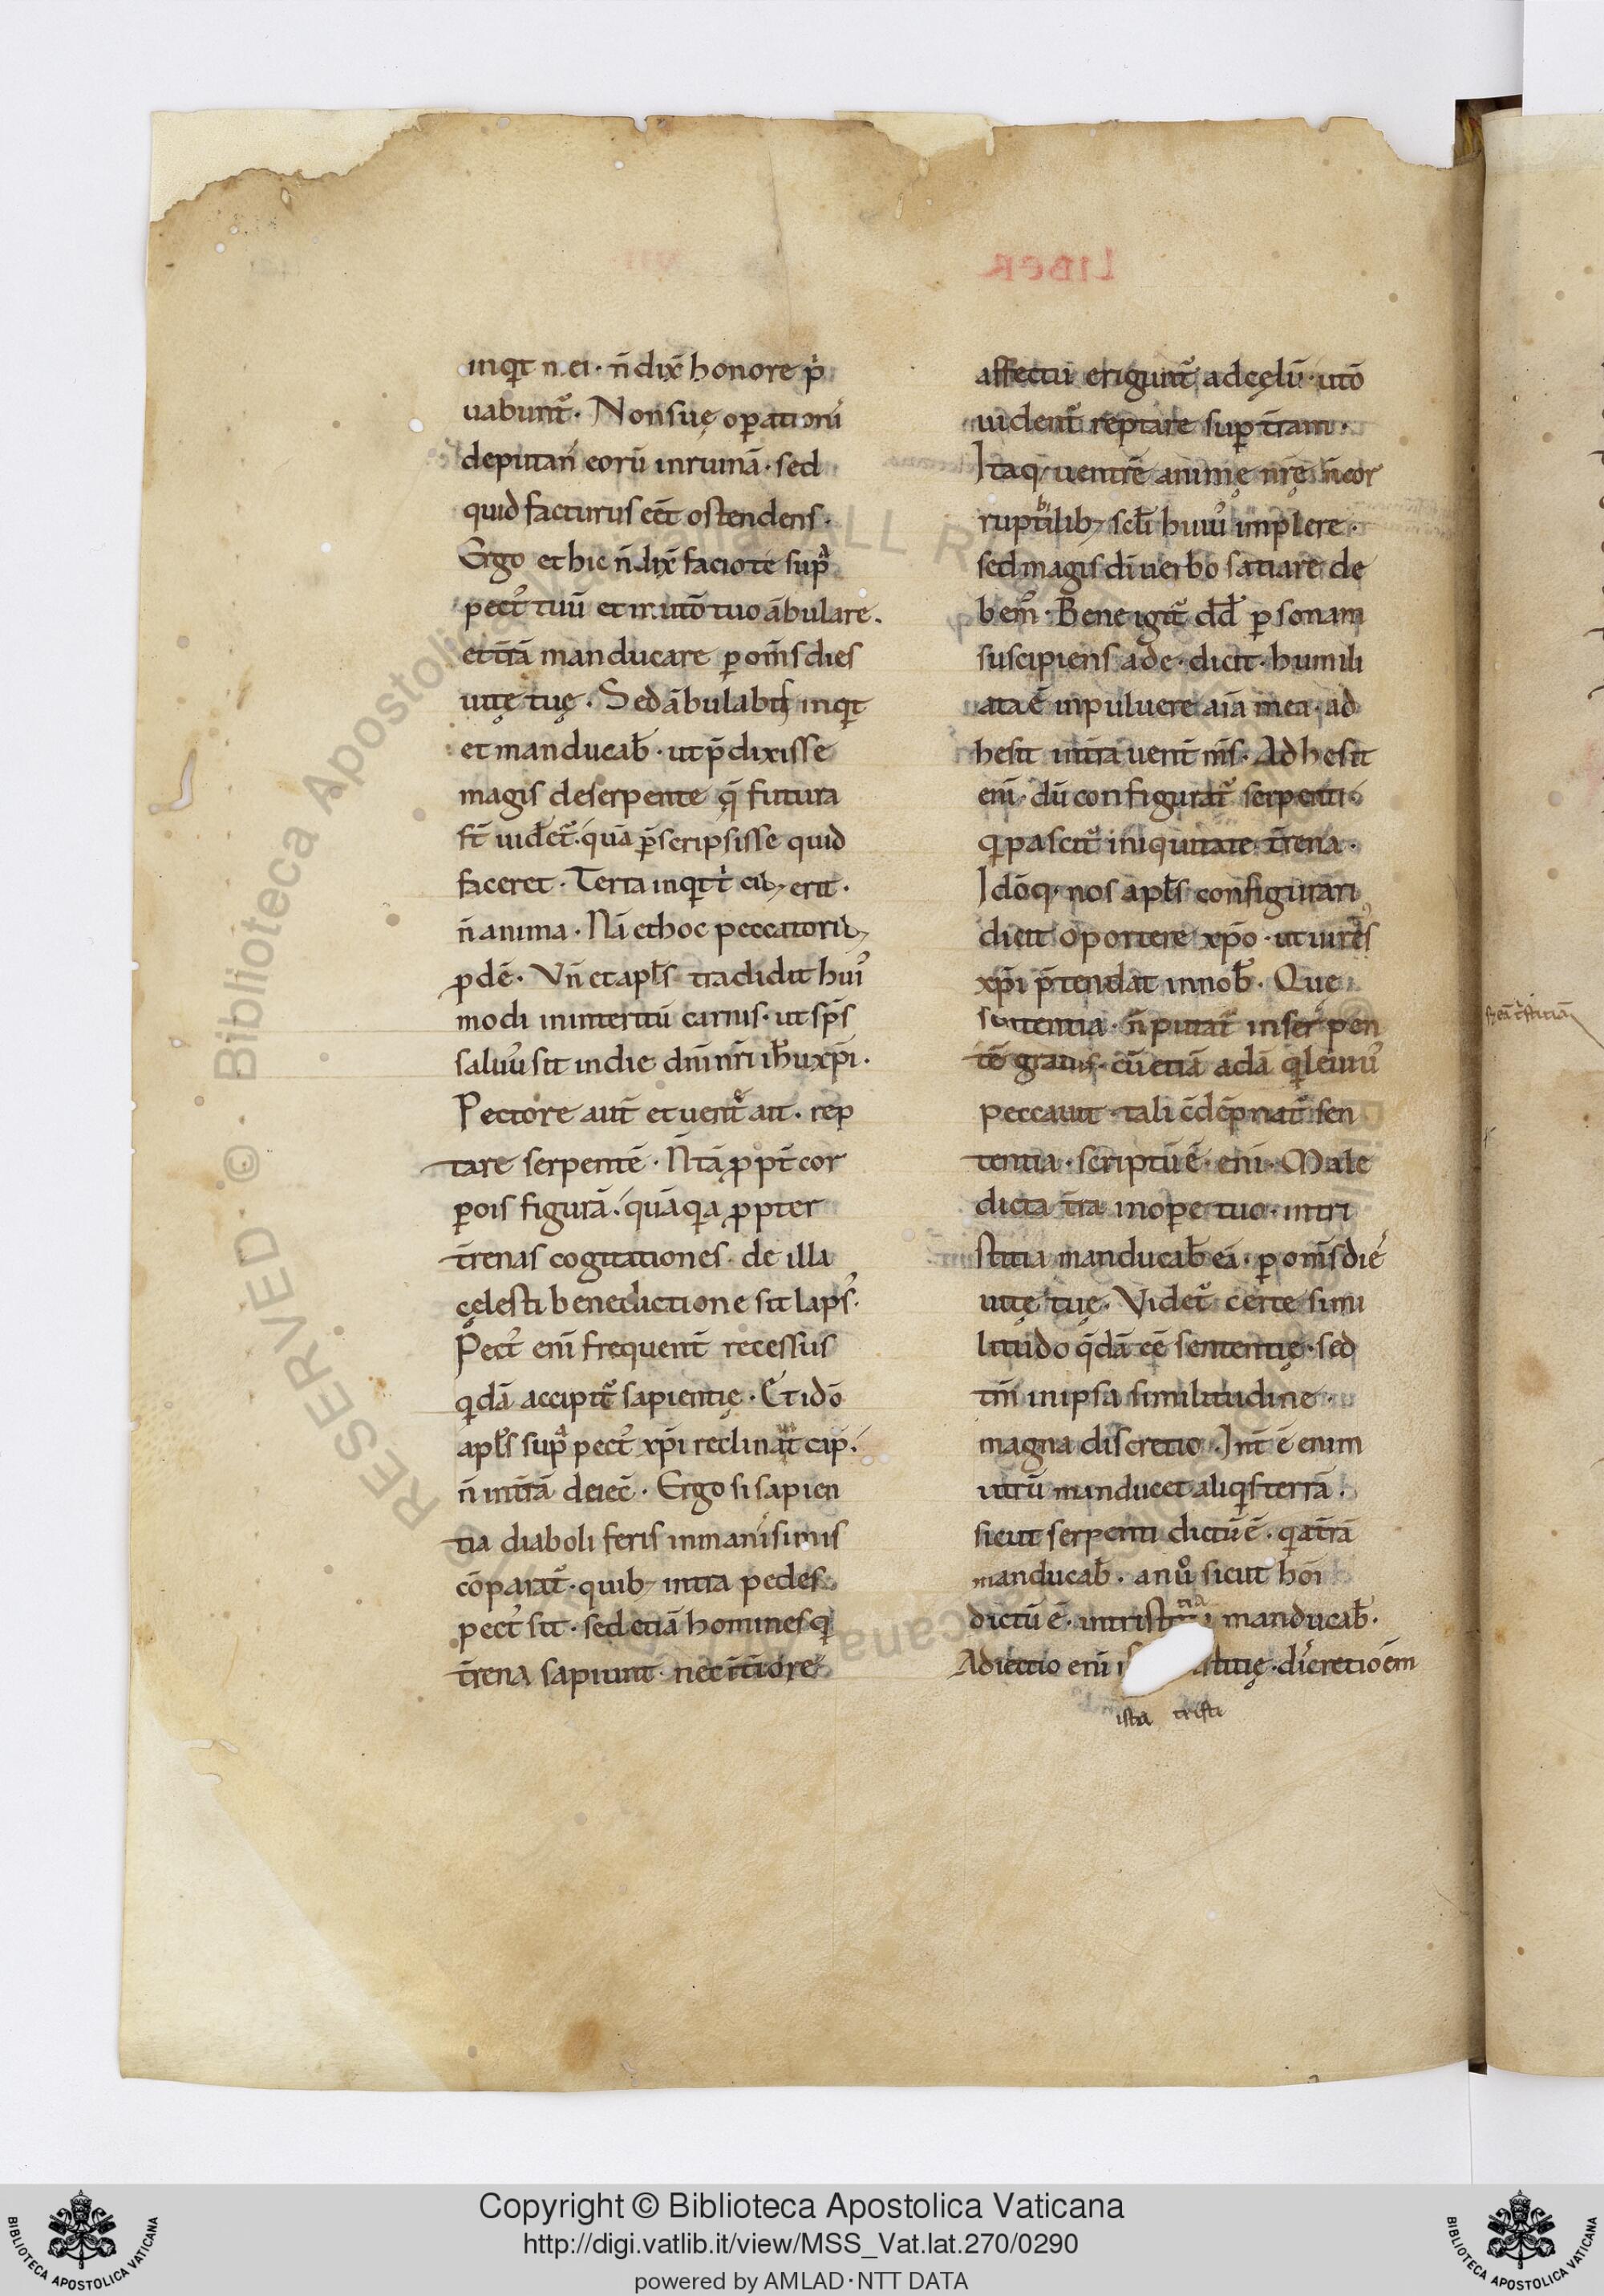 inqͥt n ei · n̄ dix̄ honore pͥ
uabunt᷑ · Non suę oꝑationi
deputans eorū inruinā · sed
quid facturus eēt ostendens ·
Ergo et hic n̄ dix̄ facio te supͣ
pect᷒ tuū et uūtͦ tuo ābulare ·
et t̄rā manducare ꝑ om̄s dies
uitę tuę · Sed ābulabis inqͥt
et manducab̄ · ut p̄dixisse
magis deserpente q̄ futura
st̄ uidet᷑ · quā p̄scripsisse quid
faceret · Terra inqͥt tͥ cib; erit ·
n̄ anima · Nā et hoc peccatorib;
ꝓdē · Vn̄ et apl̄s tradidit hui᷒
modi in interitū carnis · ut sp̄s
saluus sit in die dn̄i nr̄i ih̄u xp̄i ·
Pectore aut̄ et uentͤ ait · rep
tare serpentē · N̄ tā ꝓpt̄ cor
ꝑois figurā · quā qͥa ꝓpter
t̄renas cogitationes · de illa
cęlesti benedictione sit laps᷒ ·
Pect᷒ eni̅ frequent̄ recessus
qͥdā accipit᷑ sapientię · Et idō
apl̄s supͣ pect᷒ xp̄i reclinat cap ·
n̄ int̄rā deiec̄ · Ergo si sapien
tia diaboli feris inmanisimis
cōparat᷑ · quib; intra pedes
pect᷒ sit · sed etiā homines qͥ
t̄rena sapiunt · nec īt̄iore
LIBER
affectu erigunt᷑ ad cęlū · utō
uident᷑ reptare suꝑ t̄ram ·
Itaq; uentrē animę nr̄ę n̄ cor
ruptibilib; scl̄i hui᷒ implere ·
sed magis di̅ uerbo satiare de
bem᷒ · Bene igit᷑ dd̄ ꝑsonam
suscipiens ade · dicit · humili
ata ē inpuluere aīa mea · ad
hesit int̄ra uent̄ nr̄s · Adhesit
eni̅ · dū configurat᷑ serpenti ·
qͥ pascit᷑ iniquitate t̄rena ·
Idōq; nos apl̄s configurari
dicit oportere xp̄o · ut uirt᷒s
xp̄i p̄tendat innob̄ · Quę
sententia · n̄ putat᷑ in serpen
tē grauis · cū etiā adā qͥ leui᷒
peccauit · tali c̄dēpnat᷑ sen
tentia · scriptū ē · eni̅ · Male
dicta t̄ra in oꝑe tuo · intri
stitia manducab̄ eā · ꝑ om̄s dies
uitę tuę · Videt᷑ certe simi
litudo q̄dā eē sententię · sed
tm̄ in ipsa similitudine ·
magna discretio · Int̄ ē enim
utrū manducet aliqͥs terrā ·
sicut serpenti dictū ē · qͥa t̄rā
manducab̄ · an uͦ sicut hoī
dictū ē · intristitia manducab̄ ·
Adiectio eni̅ is titię · discretioēm
ista tristi
Copyright © Biblioteca Apostolica Vaticana
http://digi.vatlib.it/view/MSS_Vat.lat.270/0290
powered by AMLAD·NTT DATA
BIBLIOTECA APOSTOLICA VATICANA
BIBLIOTECA APOSTOLICA VATICANA